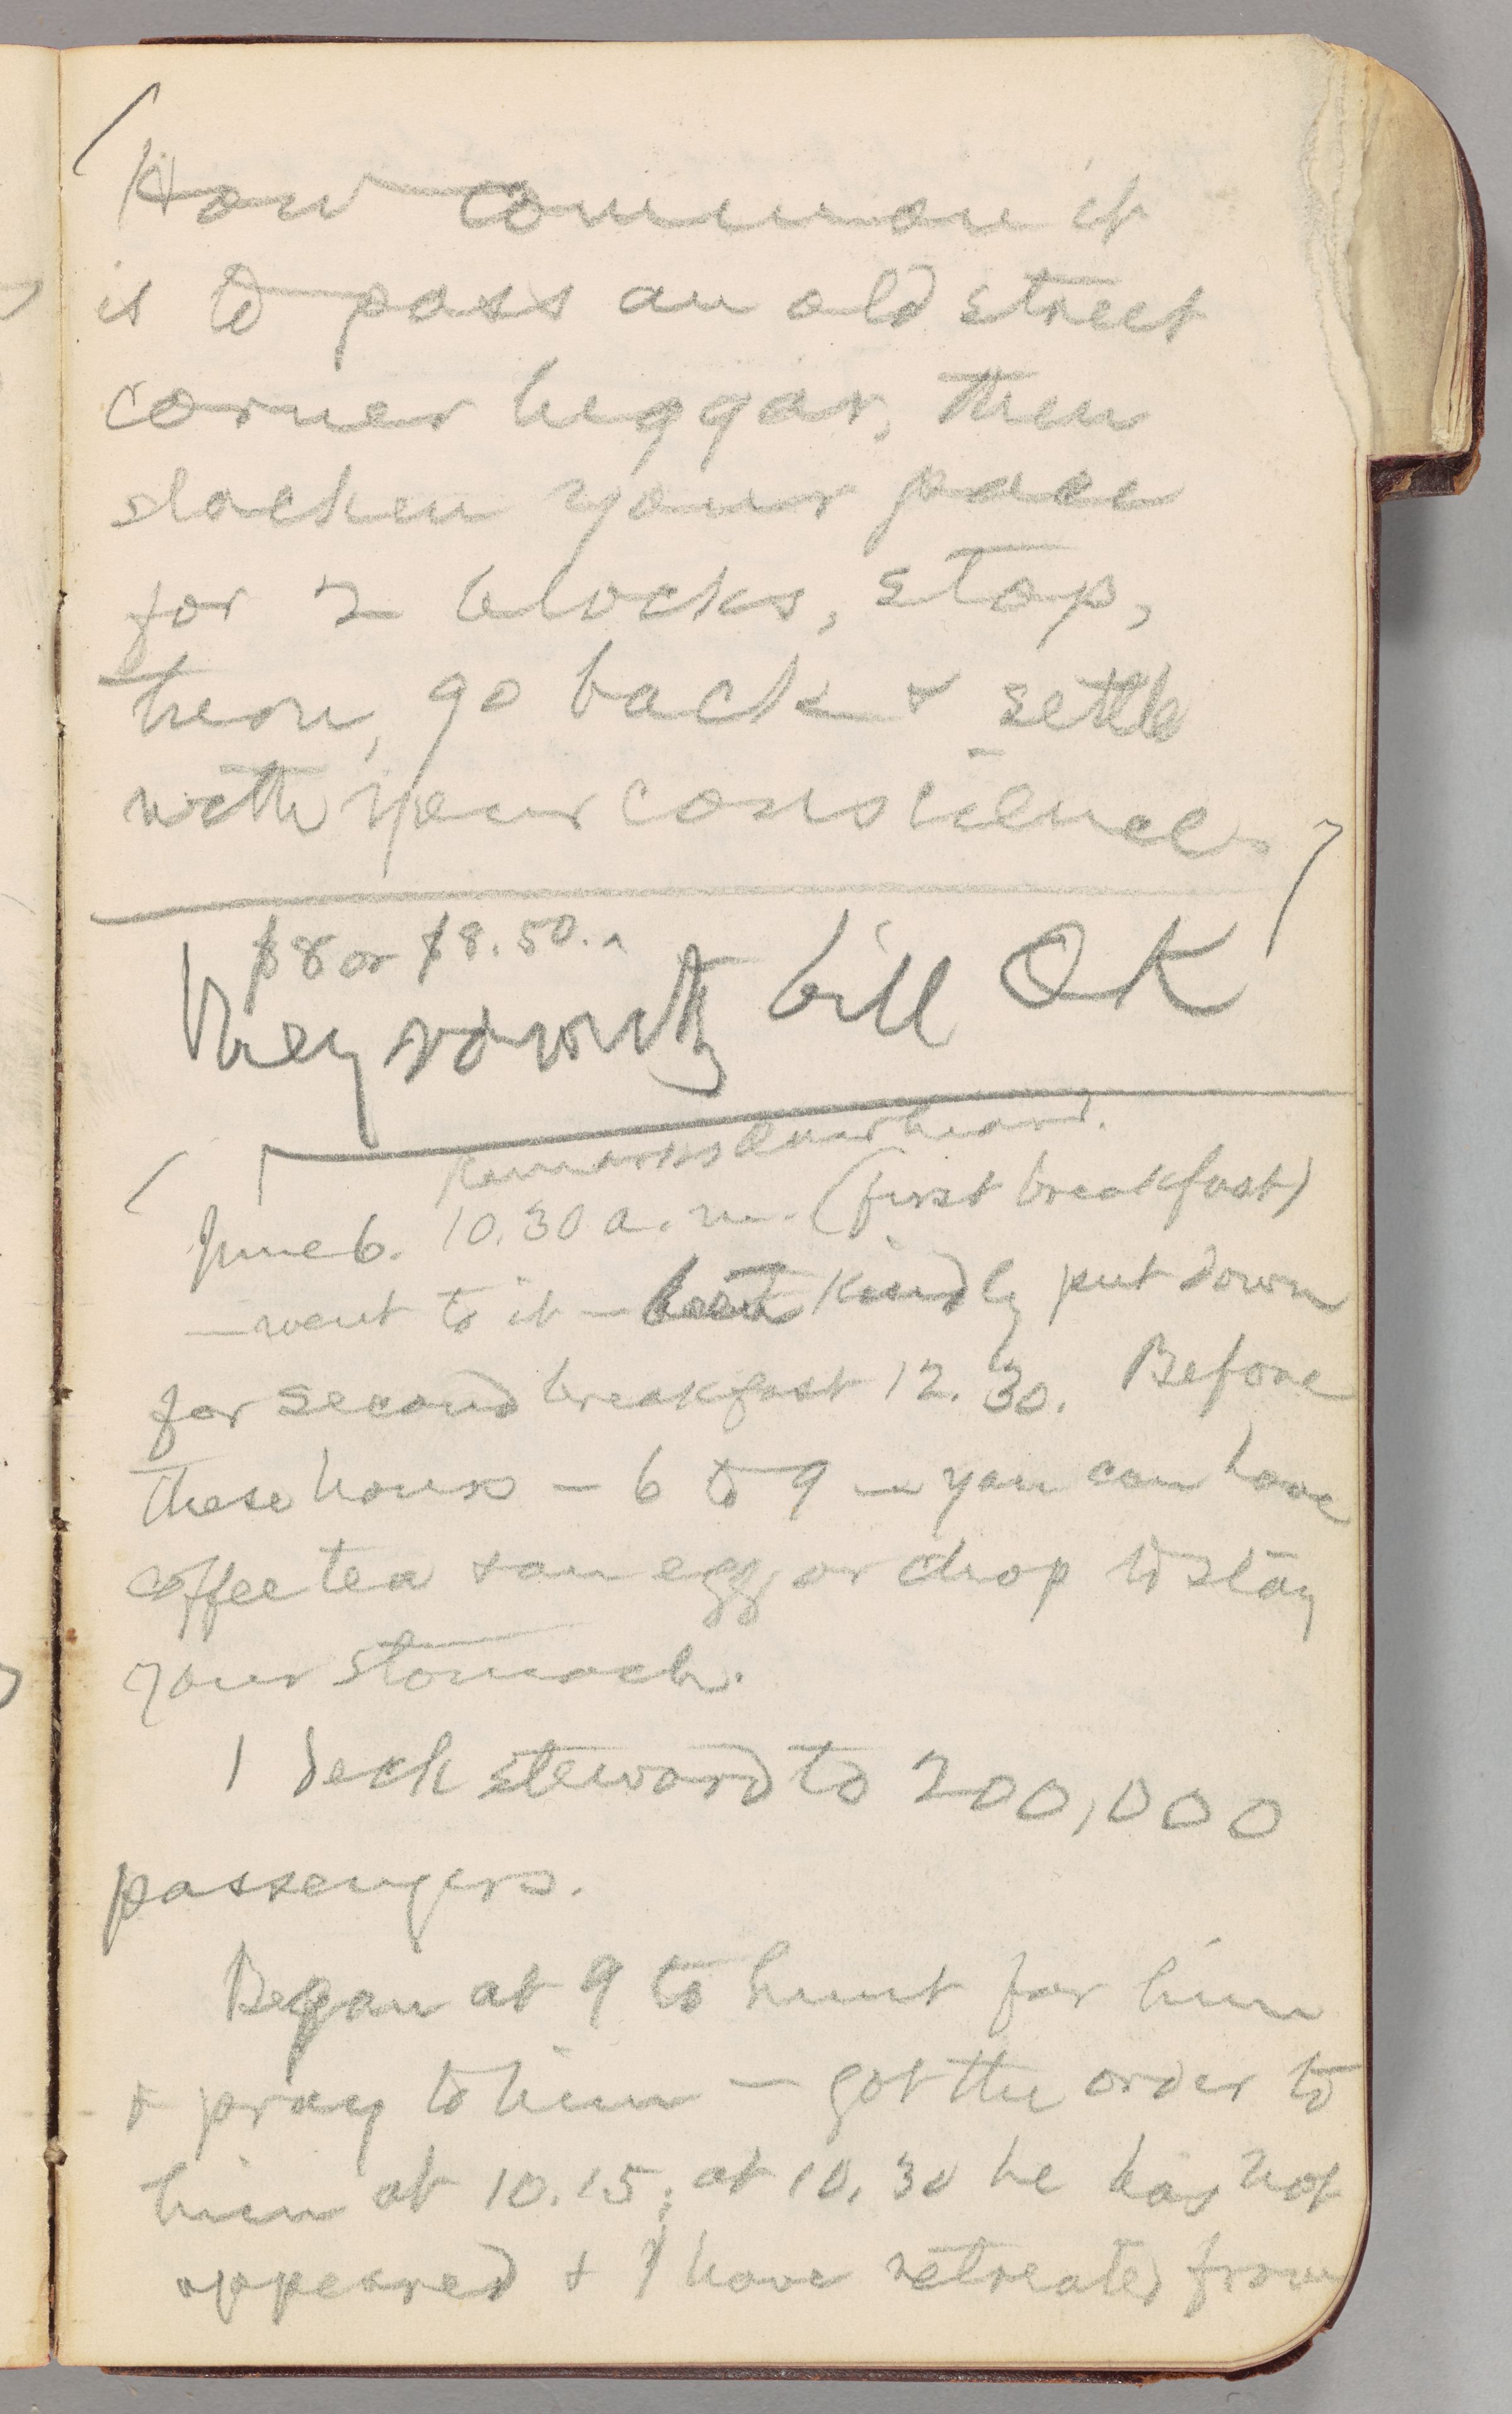 How common it
is to pass an old street
corner beggar, then
slacken your pace
for 2 blocks, stop,
then, go back & settle
with your conscience
$8 or $8.50.
bill OK
Remarks Overheard.
June 6. 10.30 a.m. (first breakfast)
—went to it — kindly put down
for second breakfast 12.30. Before
these hours — 6 to 9 — you can have
coffee tea & an egg or chop to stay
your stomach.
1 deck steward to 200,000
passengers.
Began at 9 to hunt for him
& pray to him — got the order to
him at 10.15; at 10.30 he has not
appeared & I have retreated from